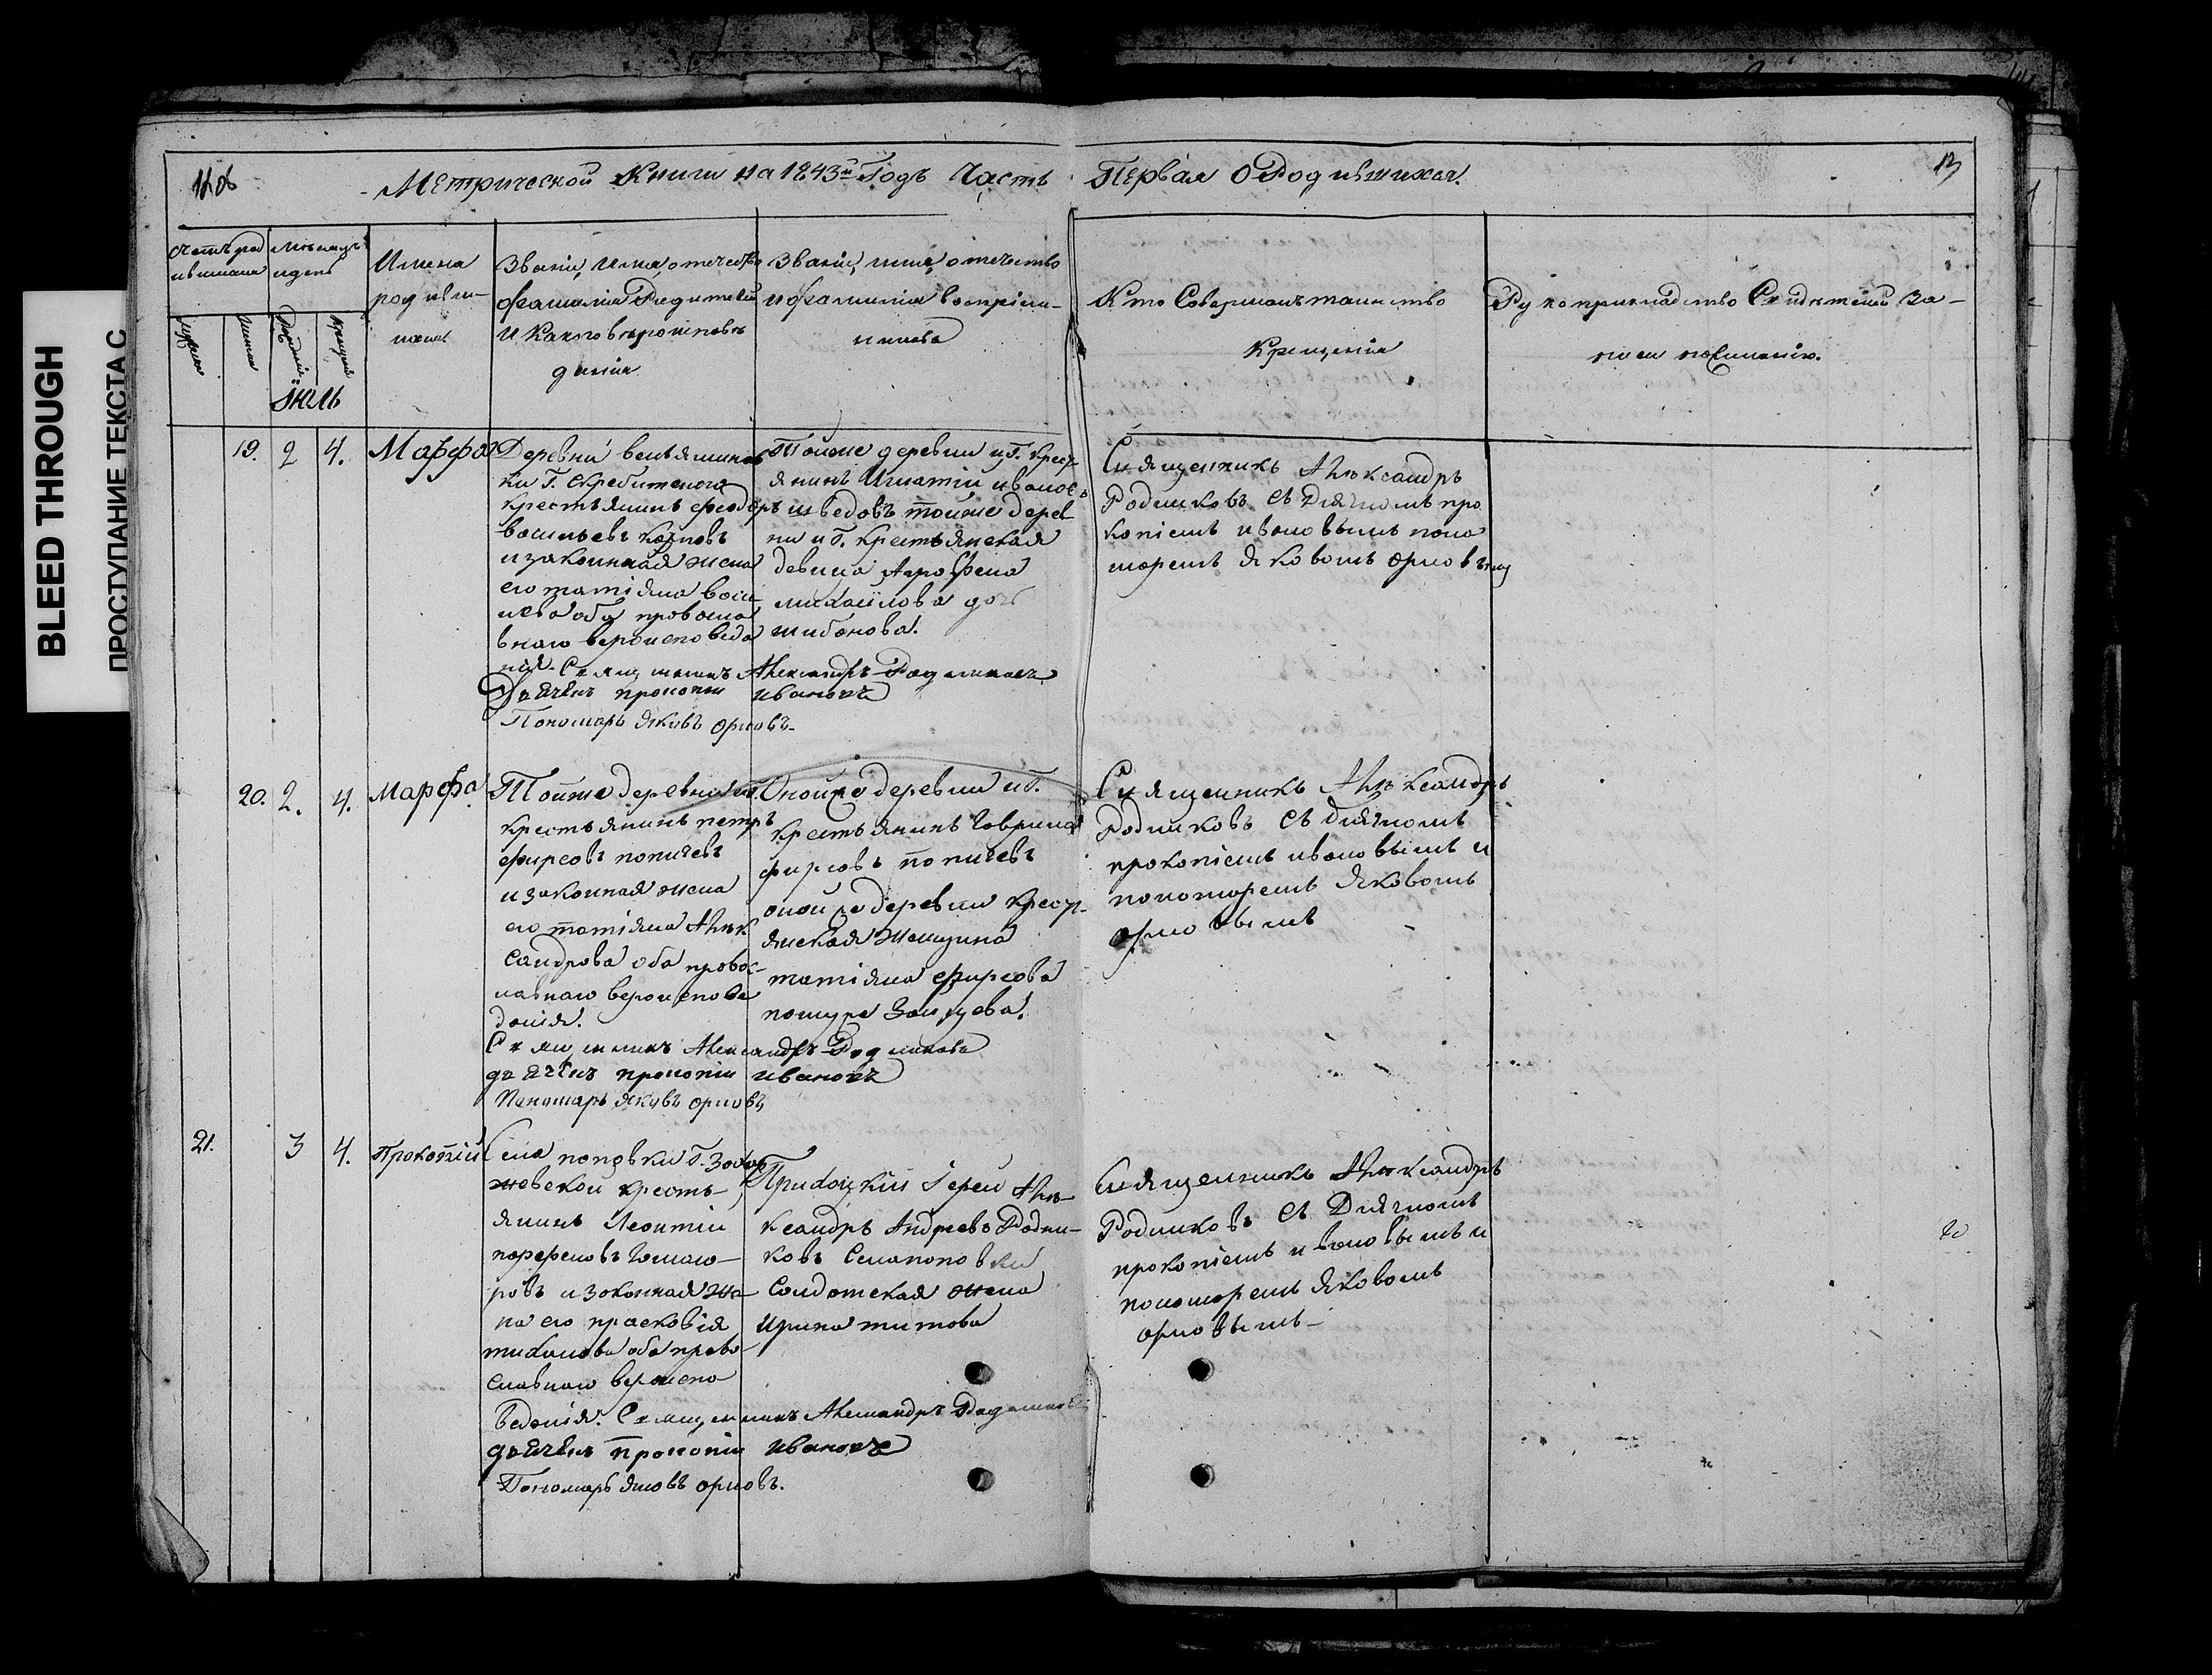 BLEED THROUGH
ПРОСТУПАНИЕ ТЕКСТА С
Метрической Книги на 1843й Годъ Часть Первая О Родившихся.
13
Счетъ родившихся
Месяцъ и день
Имена
родив-
шихся
Званіе, Имя, отчество
фамилія Родителей
и Какого вероисповѣ
данія
Званіе, имя, отчество
и фамилія воспріем-
никовъ
Кто Совершалъ таинство
Крещенія
Рукоприкладство Свидѣтелей За-
писи по желанію.
Рожденія
Крещенія
Іюль
19. 2 4. Марфа
Деревни
ки Г.
крестьянинъ феодоръ
васильевъ
и законная жена
его татіяна васи
льева оба правосла
внаго вероисповеда
нія. Священникъ Александръ Родниковъ
Дьячекъ прокопіи Ивановъ
Пономарь Яковъ орловъ.
Тойже деревни и Г. крест
янинъ Игнатіи ивановъ
шведовъ тойже дерев
ни и Г. крестьянская
девица Агрофена
михаилова дочь
шибанова.
Священникъ Алѣксандръ
Родниковъ съ Дьячкомъ про
копіемъ ивановымъ поно
моремъ Яковомъ орловымъ
20. 2. 4. Марфа
Тойже деревни и Г.
крестьянинъ петръ
фирсовъ
и законная жена
его татіяна Алѣк
сандрова оба правос-
лавнаго вероисповѣ
данія.
Священникъ Александръ Родниковъ
дьячекъ прокопіи Ивановъ
Пономарь Яковъ орловъ
Оной же деревни и Г.
крестьянинъ Гаврила
фирсовъ
оной же деревни крест-
янская женщина
татіяна фирсова
Зайцева.
Священникъ Алѣксандръ
Родниковъ съ дьячкомъ
прокопіемъ ивановымъ и
пономоремъ Яковомъ
орловымъ
21. 3 4. Прокопій
Села поповки Г.
крестъ-
янинъ Леонтіи
парфеновъ
и законная же-
на его прасковія
тиханова оба право
славнаго вероиспо
веданія. Священникъ Александръ Родниковъ
дьячекъ прокопіи Ивановъ
Пономарь Яковъ орловъ.
Приходскіи Іереи Алѣ-
ксандръ Андреевъ Родни-
ковъ Села поповки
Солдатская жена
Ирина титова
Священникъ Алѣксандръ
Родниковъ съ Дьячкомъ
прокопіемъ ивановымъ и
пономоремъ Яковомъ
орловымъ